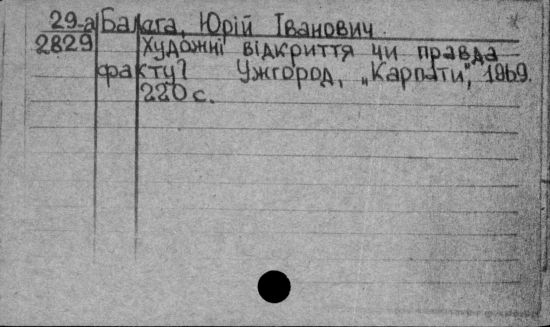 29-а Балега, Юрій Іванович
2829 Художні відкриття чи правда
факту? Ужгород, „Карпати", 1969.
220 с.